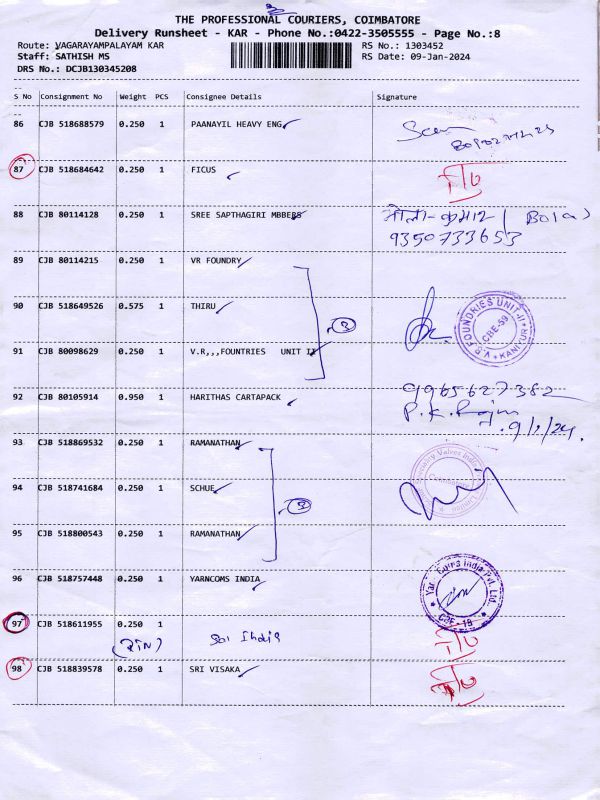 THE PROFESSIONAL COURIERS, COIMBATORE
Delivery Runsheet - KAR - Phone No.:0422-3505555 - Page No.:8
Route: VAGARAYAMPALAYAM KAR RS No.: 1303452
Staff: SATHISH MS RS Date: 09-Jan-2024
DRS No.: DCJB130345208
S No Consignment No Weight PCS Consignee Details Signature
86 CJB 518688579 0.250 1 PAANAYIL HEAVY ENG
87 CJB 518684642 0.250 1 FICUS
88 CJB 80114128 0.250 1 SREE SAPTHAGIRI MBBERS
9350733653
89 CJB 80114215 0.250 1 VR FOUNDRY
90 CJB 518649526 0.575 1 THIRU
V.S. FOUNDRIES UNIT-II
CBE-59
KANIYUR
91 CJB 80098629 0.250 1 V.R,,,FOUNTRIES UNIT II
3
92 CJB 80105914 0.950 1 HARITHAS CARTAPACK 9965627382
9/1/24.
93 CJB 518869532 0.250 1 RAMANATHAN
94 CJB 518741684 0.250 1 SCHUE
3
95 CJB 518800543 0.250 1 RAMANATHAN
96 CJB 518757448 0.250 1 YARNCOMS INDIA
97 CJB 518611955 0.250 1
98 CJB 518839578 0.250 1 SRI VISAKA